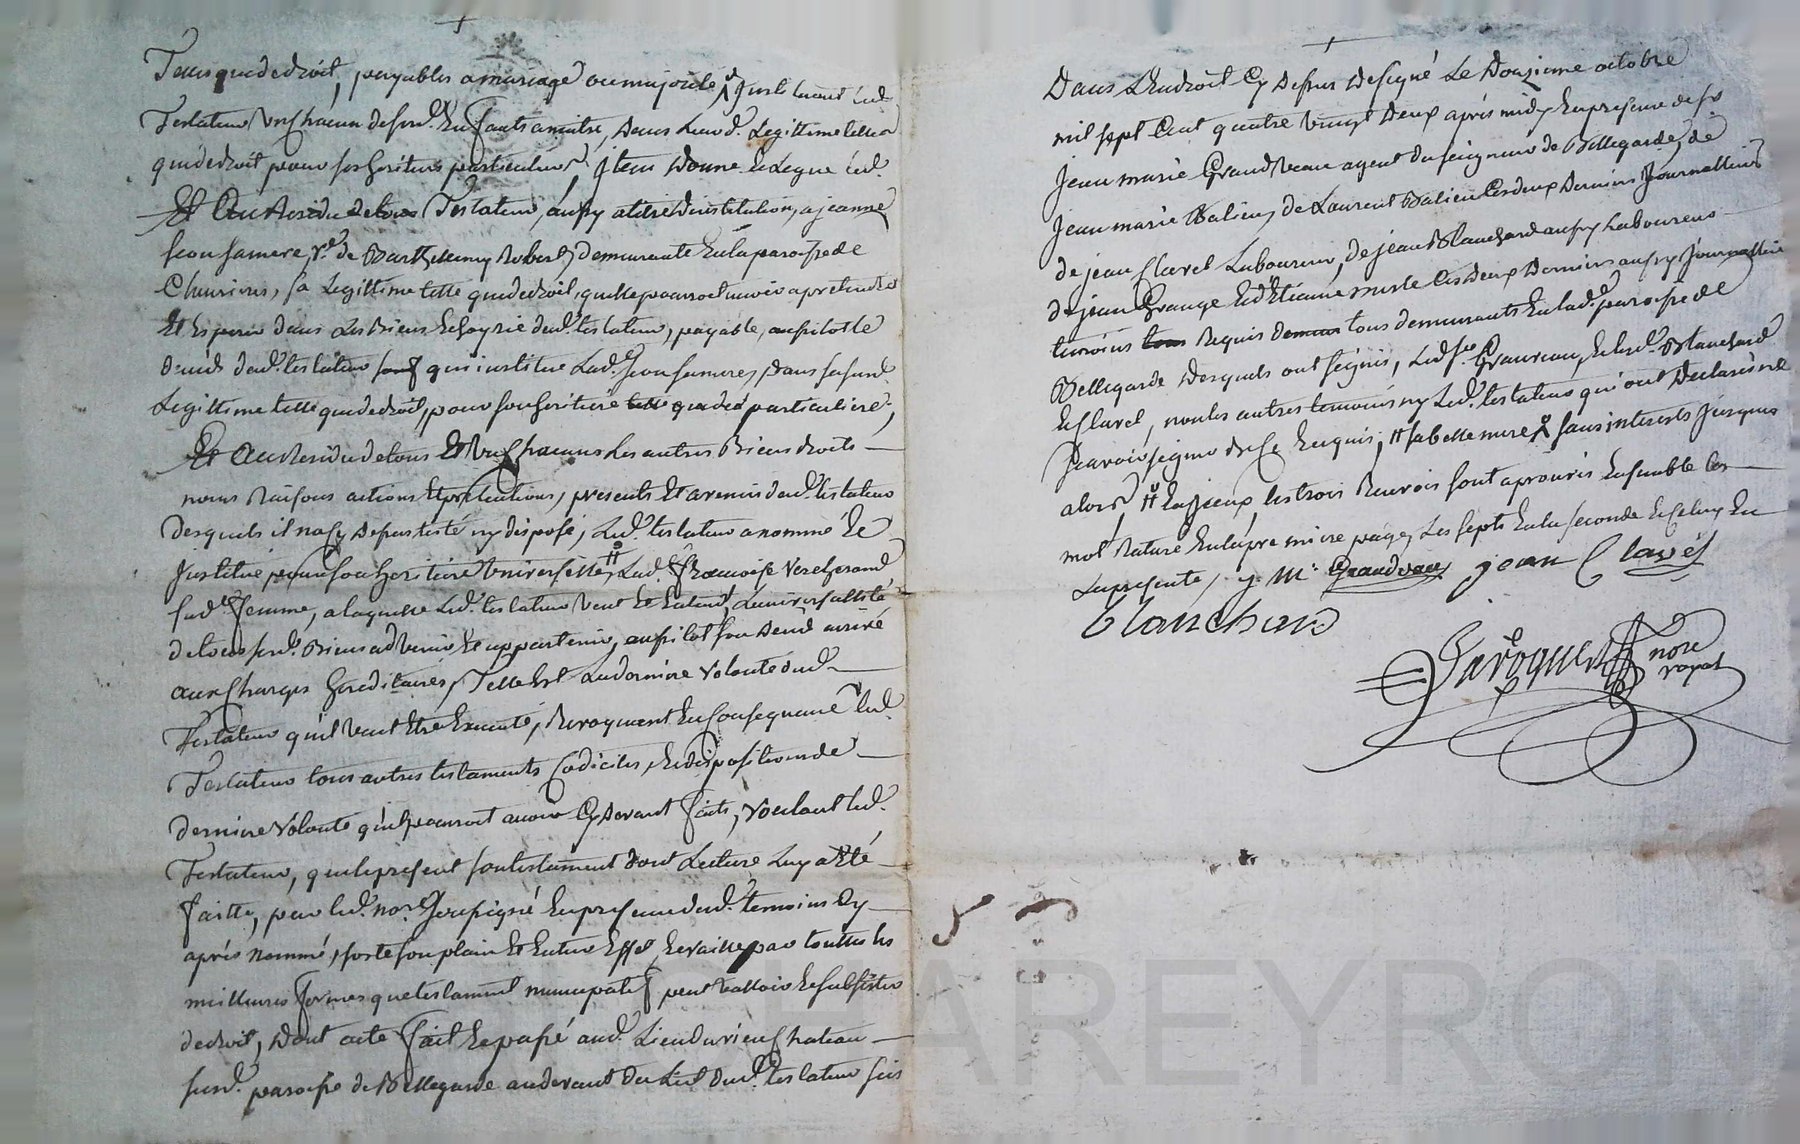 Telle que de droit, payables a mariage ou majorité, institunt led.
Testateur Un chacun desd. Enfants a naitre, dans leurd. Legittime telle
que de droit pour ses heritiers particuliers, Item donne Et Legue led.
Et Au Residu de tous Testateur, aussy a titre d'institution, a jeanne
seon sa mere, ve. de Barthelemy Robert, demeurante En la paroisse de
Chevrieres, sa Legittime telle que de droit, quelle pourroit avoir a pretendre
Et Esperer dans Les Biens Et hoyrie dud. testateur, payable, aussitot le
deces dud. testateur qui institue Lad. seon sa mere, dans sa susd.
Legittime telle que de droit, pour son heritiere telle que de d particuliere,
Et Au Residu de tous Et Un Chacuns Les autres Biens droits
noms Raisons actions Et pretentions, presents Et avenir dud. testateur
Desquels il n'a Cy Dessus testé ny disposé, Led. testateur a nommé Et
Institué pour son heritiere Universelle, # Lad. françoise Vercherand
sad. femme, a laquelle Led. testateur veut Et Entend, L'universallité
de tous sesd. Biens advenir Et appartenir, aussitot son deces arrivé
aux Charges hereditaires, Telle Est La derniere Volonté dud.
Testateur qu'il veut Etre Executé, Revoquant En Consequence led.
Testateur tous autres testaments Codiciles, Et dispositions de
derniere Volonté qu'il pourroit avoir Cy devant faits, Voulant led.
Testateur, que le present son testament dont Lecture Luy a Eté
faitte, par led. nore. Soussigné En presence desd. temoins Cy
après nommé, sorte son plain Et Entier Effet, Et vaille par touttes les
meilleures formes que testament nuncupatif peut valloir Et subsister
de droit, dont acte fait Et passé aud. Lieu du vieux Chateau
susd. paroisse de Bellegarde au devant du Lit dud. testateur sis
Dans L'Endroit Cy Dessus Designé Le Douzieme octobre
mil sept Cent quatre Vingt Deux après midy En presence de sr.
Jean marie Grandveau agent du seigneur de Bellegarde, de
Jean marie Balieu, de Laurent Balieu Ces deux Derniers Journalliers
de jean Clavel Laboureur, de jean Blanchard aussy Laboureur
de jean Grange Et d'Etienne Ces Deux Derniers aussy Journalliers
temoins tous Requis demeu tous demeurants En lad. paroisse de
Bellegarde Desquels ont signés, Led. sr. Granveau, Et led. Blanchard
Et Clavel, non les autres temoins ny Led. testateur qui ont Declarés ne
sçavoir signer de Ce Enquis, # sa belle mere sans interests jusques
alors # Les trois Renvois sont aprouvés Ensemble les
mot Raturé En la premiere page, Les sept En la seconde Et Celuy En
La presente, J. M. Grandveau jean Clavel
blanchard
nore
royal
CHAREYRON